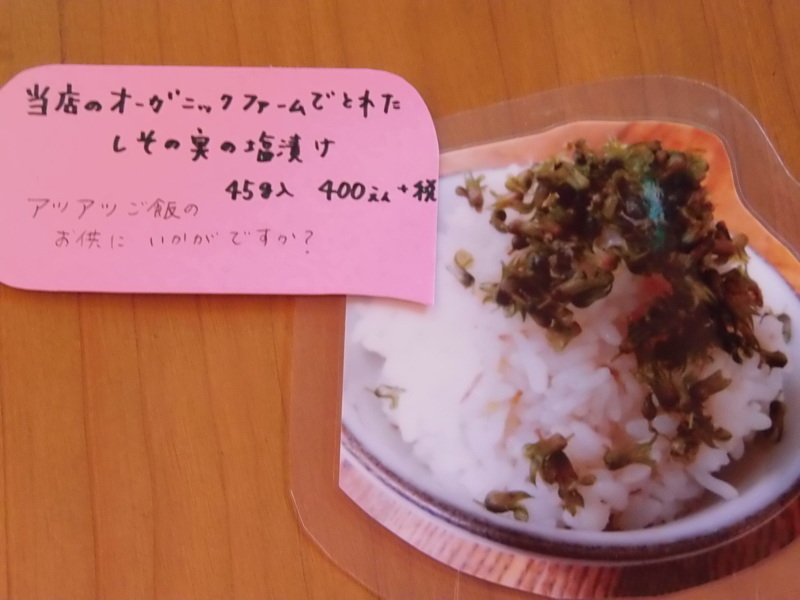 当店のオーガニックファームでとれた
しその実の塩漬け
45g入 400えん+税
アツアツご飯の
お供に いかがですか?